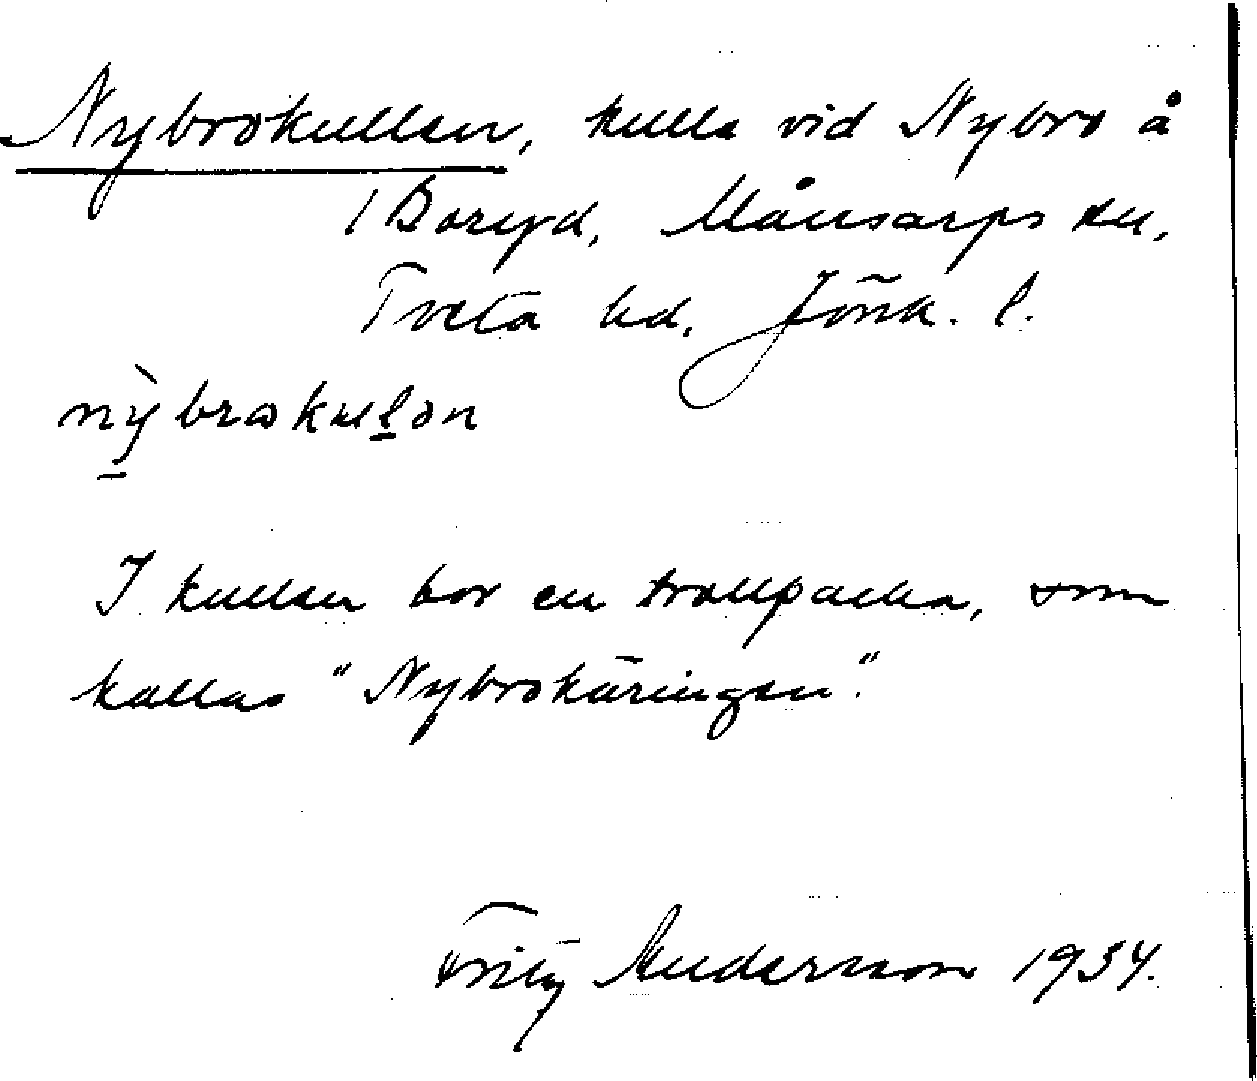 Nybrokullen, kulle vid Nybro å
1 Boryd, Månsarps sn,
Tveta hd. Jönk. l.
nỳbrokulən
I kullen bor en trollpacka, som
kallas "Nybrokäringen".
Fritz Andersson 1934.